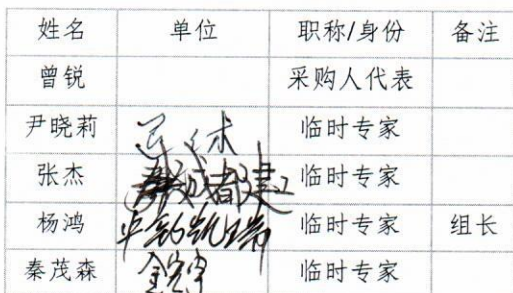 姓名 单位 职称/身份 备注
曾锐 采购人代表
尹晓莉 临时专家
张杰 成都建工 临时专家
杨鸿 临时专家 组长
秦茂森 临时专家